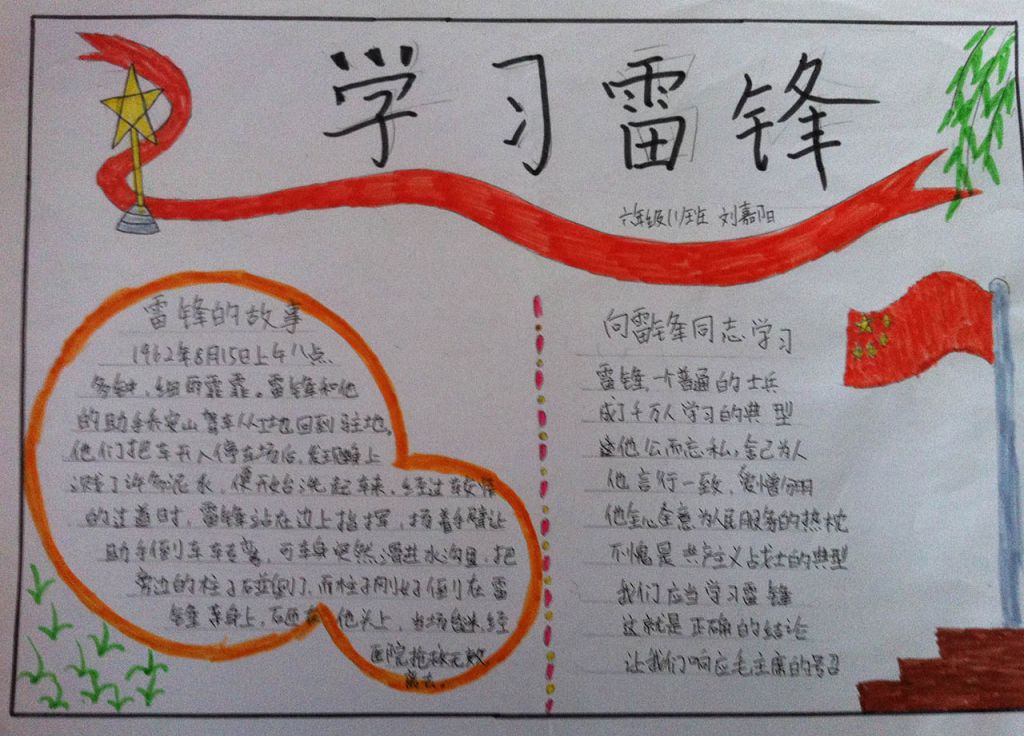 学习雷锋
六年级(1)班 刘嘉阳
雷锋的故事
1962年8月15日上午八点
多钟，细雨霏霏。雷锋和他
的助手乔安山驾车从工地回到驻地。
他们把车开入停车场后，发现车上
溅了许多泥水，便开始洗起车来。经过
的过道时，雷锋站在边上指挥，扬着手臂让
助手倒车车转弯，可车身突然滑进水沟里，把
旁边的柱子碰倒了，而柱子刚好倒在雷
锋身上，砸在他头上，当场经
医院抢救无效
离去。
向雷锋同志学习
雷锋，一个普通的士兵
成了千万人学习的典型
这他公而忘私，舍己为人
他言行一致，爱憎分明
他全心全意为人民服务的热忱
不愧是共产主义战士的典型
我们应当学习雷锋
这就是正确的结论
让我们响应毛主席的号召